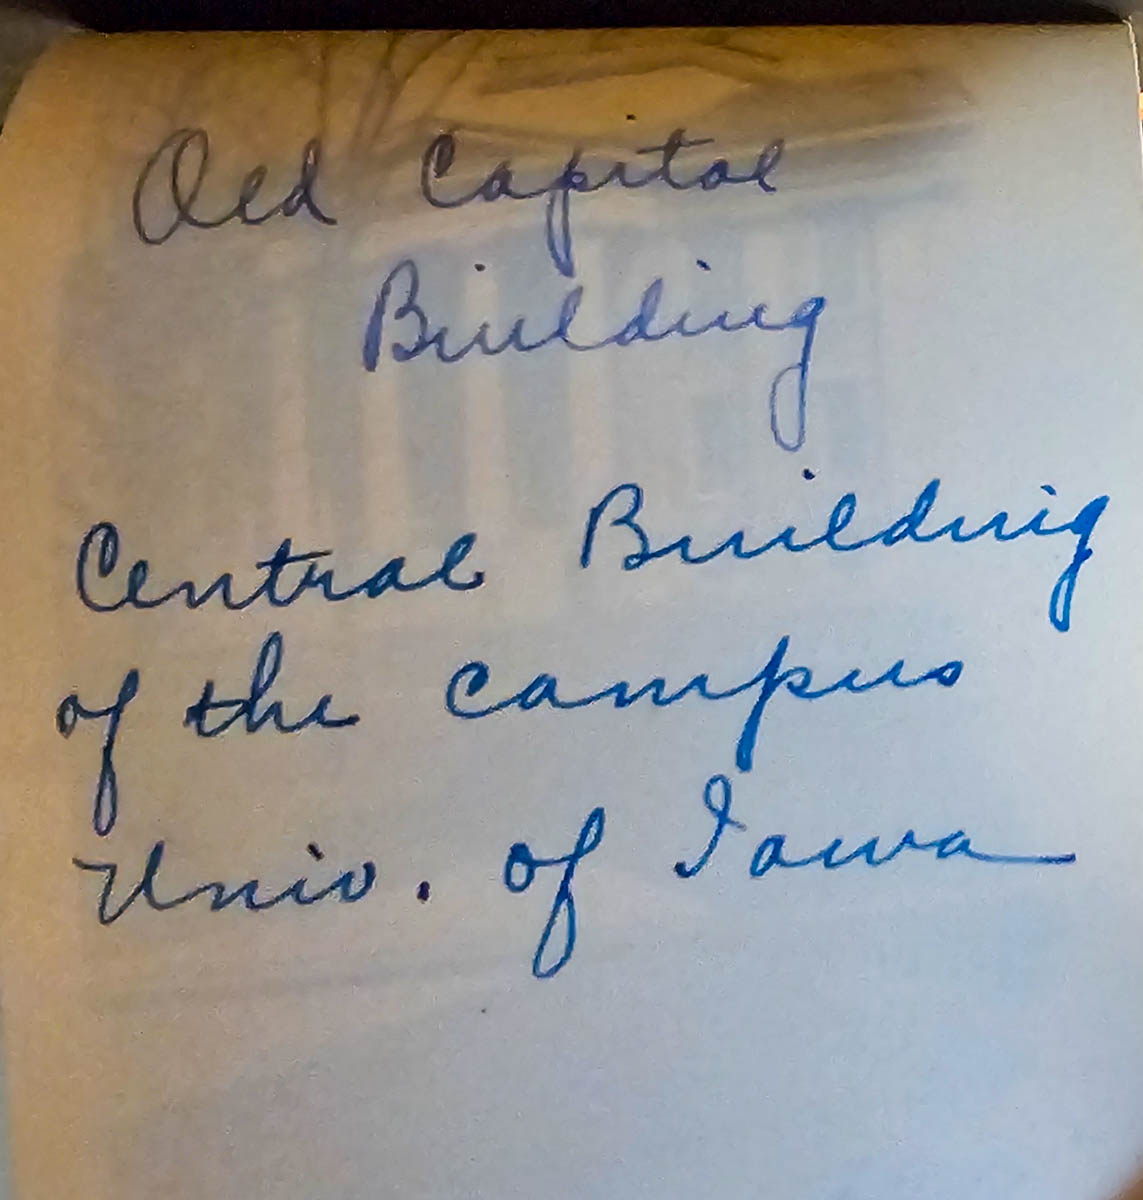 Old Capitol
Building
Central Building
of the campus
Univ. of Iowa